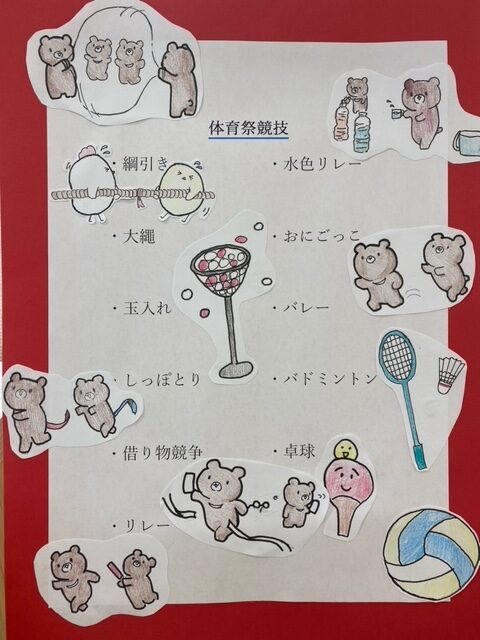 体育祭競技
・綱引き
・大縄
・玉入れ
・しっぽとり
・借り物競争
・リレー
・水色リレー
・おにごっこ
・バレー
・バドミントン
・卓球